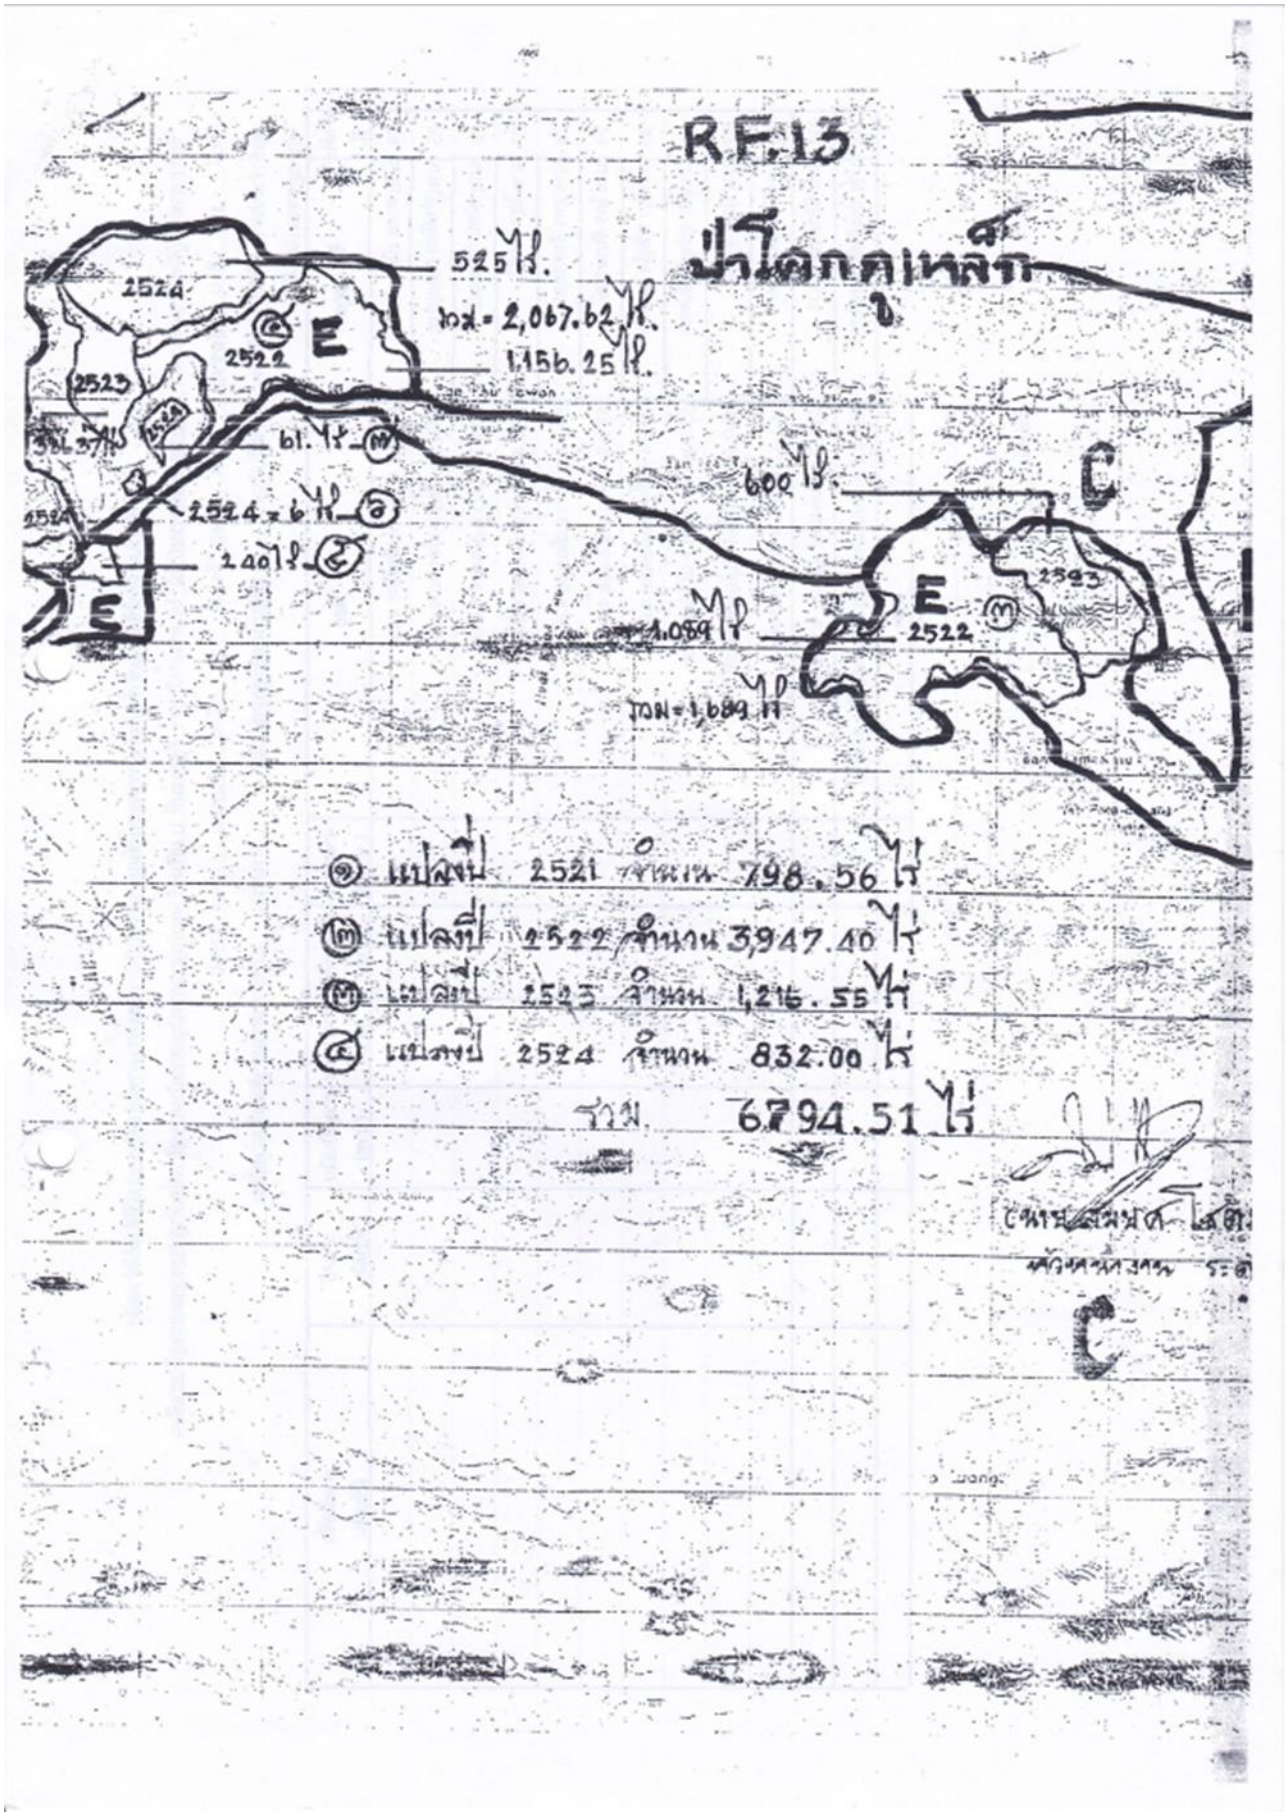 R.F.13
ป่าโคกคูเหล็ก
525 ไร่.
2524
รวม = 2,067.62 ไร่.
๔ E
2522
1,156.25 ไร่.
2523
2524
61. ไร่ ๗
600 ไร่.
C
2524 = 6 ไร่ ๖
2524
240 ไร่ ๕
E
2523
E ๓
2522
1,089 ไร่
รวม = 1,689 ไร่
๑ แปลงปี 2521 จำนวน 798.56 ไร่
๒ แปลงปี 2522 จำนวน 3,947.40 ไร่
๓ แปลงปี 2523 จำนวน 1,216.55 ไร่
๔ แปลงปี 2524 จำนวน 832.00 ไร่
รวม 6794.51 ไร่
C